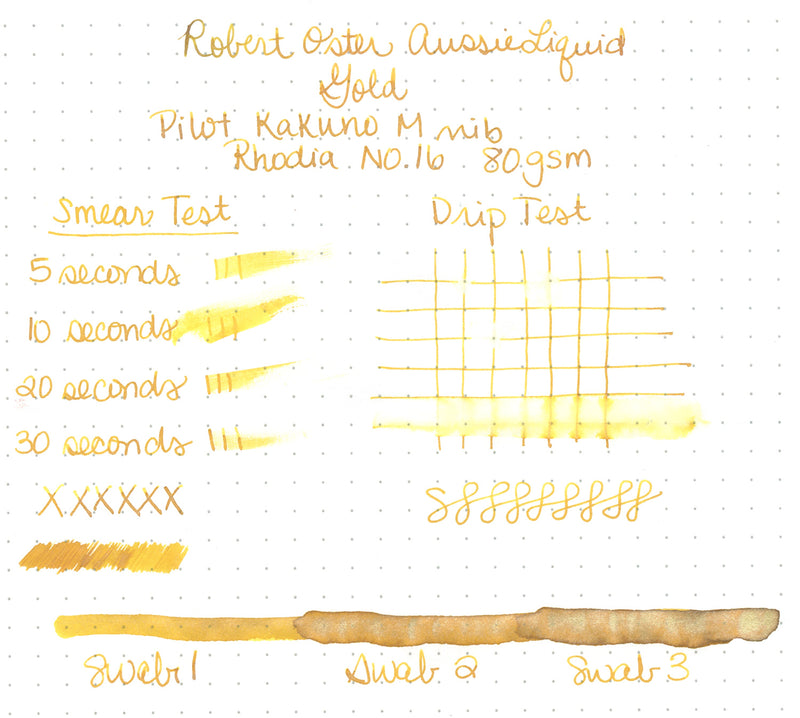 Robert Oster Aussie Liquid
Gold
Pilot Kakuno M nib
Rhodia No.16 80gsm
Smear Test
Drip Test
5 seconds
10 seconds
20 seconds
30 seconds
XXXXXX
Swab 1
Swab 2
Swab 3